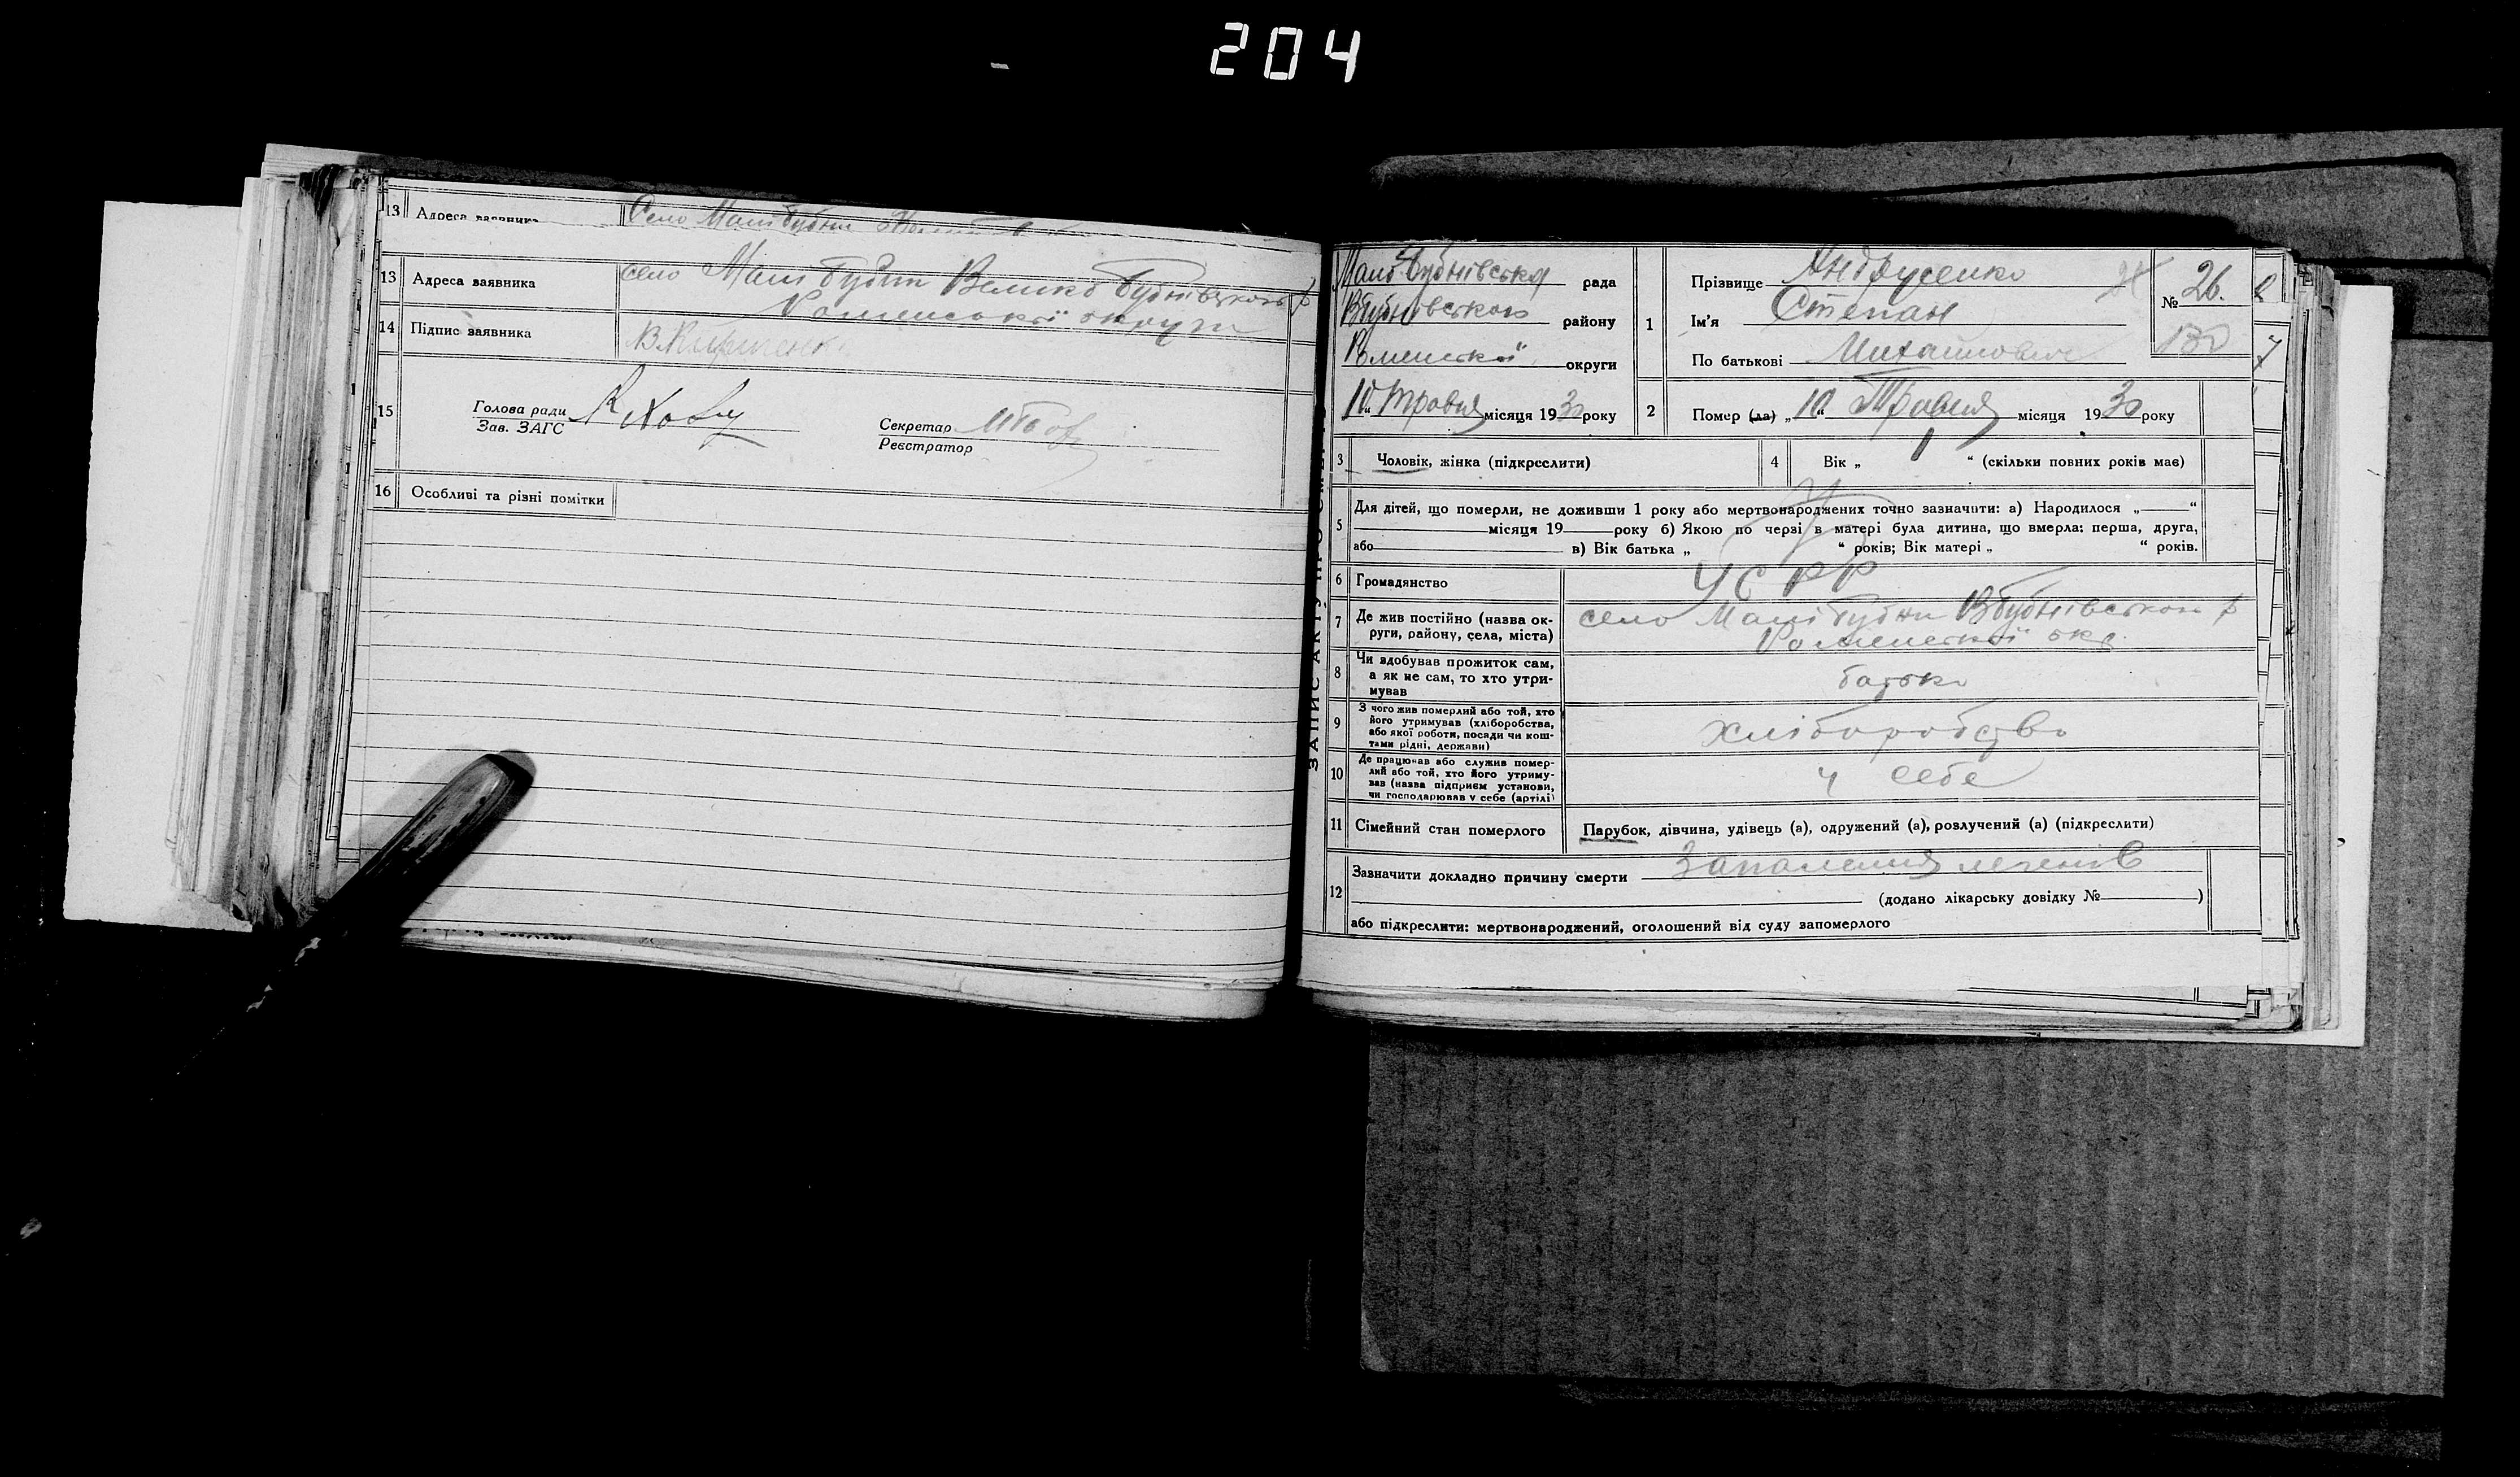 204
13 Адреса заявника Село Малі Бубни
13 Адреса заявника село Малі Бубни Велико Бубнівського р
Роменської округи
14 Підпис заявника
15 Голова ради
Зав. ЗАГС
Секретар
Реєстратор
16 Особливі та різні помітки
ЗАПИС АКТУ ПРО СМЕРТЬ
Мало Бубнівська рада
ВБубнівського району
Роменської округи
10 травня місяця 1930 року
1 Прізвище Андрусенко
Ім'я Степан
По батькові Михайлович
№ 26.
2 Помер (ла) „10" Травня місяця 1930 року
3 Чоловік, жінка (підкреслити)
4 Вік „ 1 " (скільки повних років має)
5 Для дітей, що померли, не доживши 1 року або мертвонароджених точно зазначити: а) Народилося „ "
місяця 19 року б) Якою по черзі в матері була дитина, що вмерла: перша, друга,
або в) Вік батька „ " років; Вік матері „ " років.
6 Громадянство УСРР
7 Де жив постійно (назва ок-
руги, району, села, міста) село Малі Бубни ВБубнівського р
Роменської окр.
8 Чи здобував прожиток сам,
а як не сам, то хто утри-
мував батько
9 З чого жив померлий або той, хто
його утримував (хліборобства,
або якої роботи, посади чи кош-
тами рідні, держави) хліборобство
10 Де працював або служив помер-
лий або той, хто його утриму-
вав (назва підприєм установи,
чи господарював у себе (артілі) у себе
11 Сімейний стан померлого Парубок, дівчина, удівець (а), одружений (а), розлучений (а) (підкреслити)
12 Зазначити докладно причину смерти Запалення легенів
(додано лікарську довідку № )
або підкреслити: мертвонароджений, оголошений від суду запомерлого